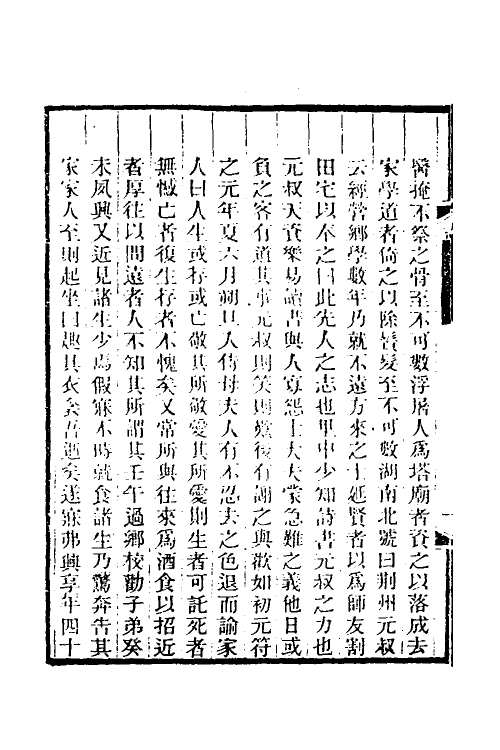 醫掩不祭之骨至不可數浮屠人爲塔廟者資之以落成去
家學道者倚之以除鬚髮至不可數湖南北號曰荆州元叔
云經營鄉學數年乃就不遠方來之士延賢者以爲師友割
田宅以奉之曰此先人之志也里中少知詩書元叔之力也
元叔天資樂易讀書與人寡怨士大夫蒙急難之義他日或
負之客有道其事元叔則笑則
後有謝之與歡如初元符
之元年夏六月朔旦入侍母夫人有不忍去之色退而諭家
人曰人生或存或亡敬其所敬愛其所愛則生者可託死者
無憾亡者復生存者不愧矣又常所與往來爲酒食以招近
者厚往以間遠者人不知其所謂其壬午過鄉校勸子弟癸
未夙興又近見諸生少焉假寐不時就食諸生乃驚奔告其
家家人至則起坐曰趣具衣衾吾逝矣遂寐弗興享年四十